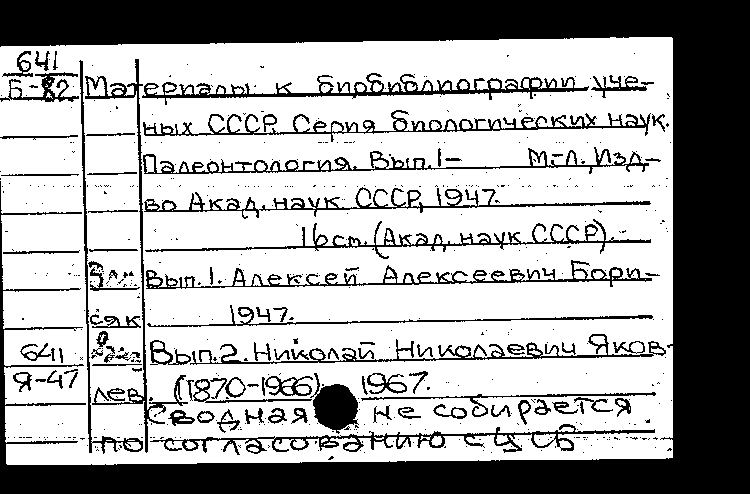 641
Б-82 Материалы к биобиблиографии уче-
ных СССР. Серия биологических наук.
Палеонтология. Вып.1- М.-Л., Изд-
во Акад. наук СССР, 1947.
16 cm. (Акад. наук СССР).
Вып.1. Алексей Алексеевич Бори-
сяк. 1947.
641 Вып.2. Николай Николаевич Яков-
Я-47 лев. (1870-1966). 1967.
Сводная не собирается
по согласованию с ЦСБ